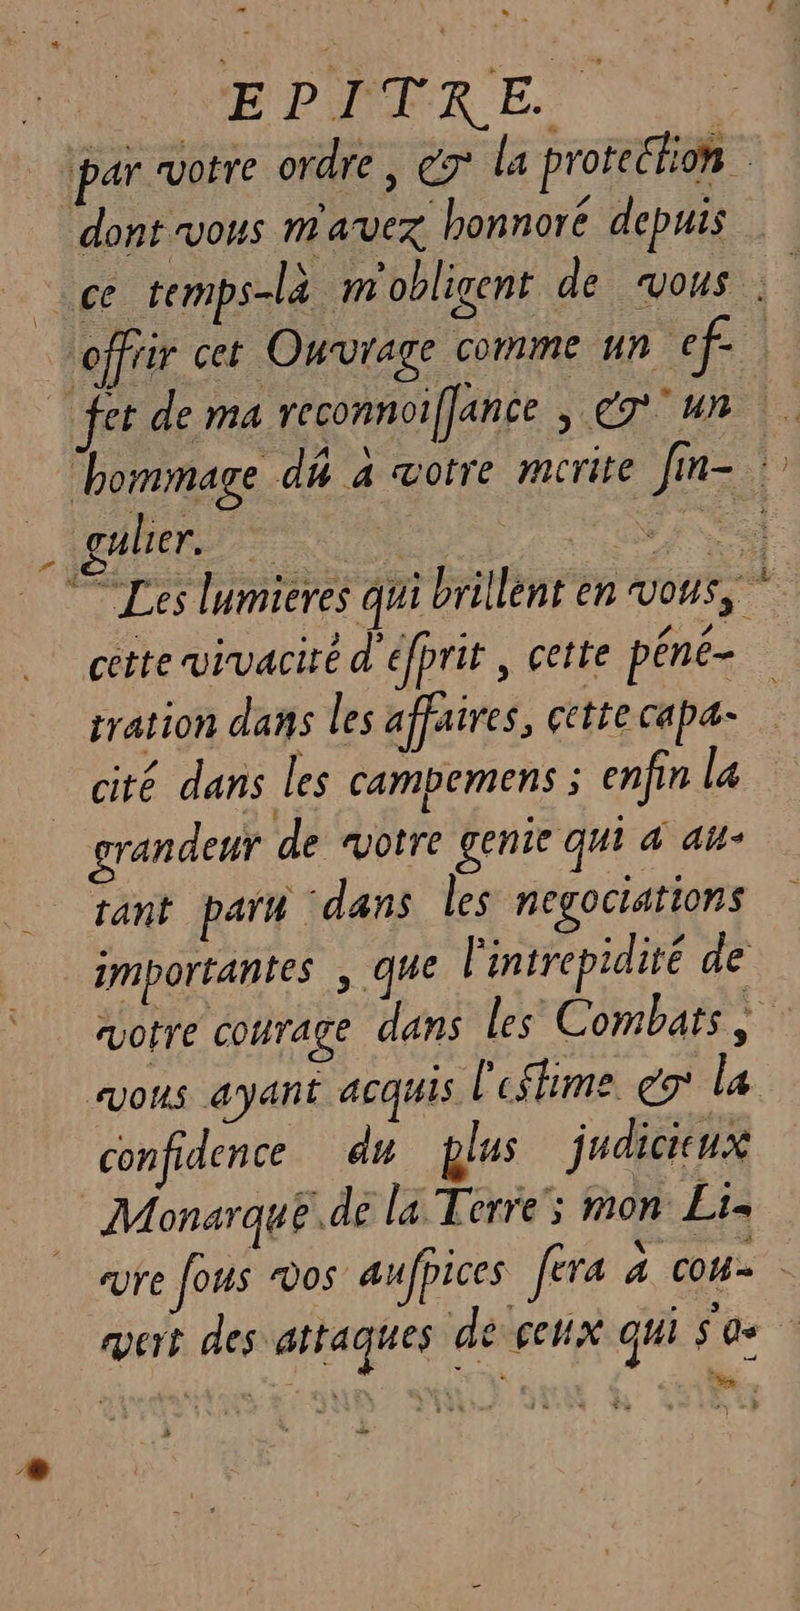 EPITRE.
par votre ordre, & la protection
dont vous m'avez honnoré depuis
ce temps-là m'obligent de vous
offrir cet Ouvrage comme un ef-
fet de ma reconnoiſſance, & un
hommage dû à votre merite ſin-
gulier.
Les lumieres qui brillent en vous,
cette vivacité d'eſprit, cette péné-
tration dans les affaires, cette capa-
cité dans les campemens; enfin la
grandeur de votre genie qui a au-
tant paru dans les negociations
importantes, que l'intrepidité de
votre courage dans les Combats,
vous ayant acquis l'eſtime & la
confidence du plus judicieux
Monarque de la Terre; mon Li-
vre ſous vos auſpices ſera à cou-
vert des attaques de ceux qui s'o-